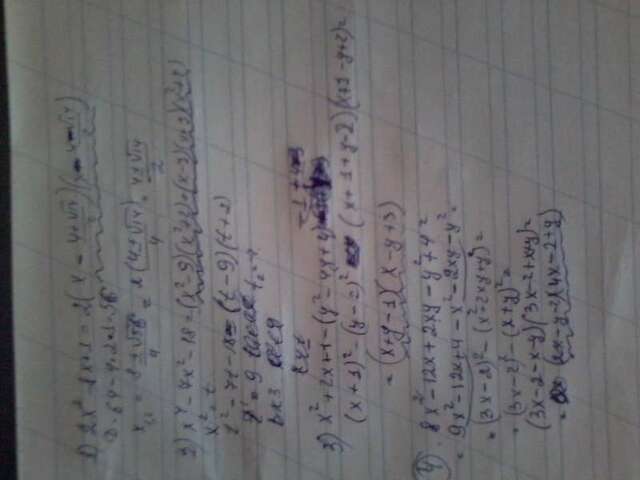 1) 2x² - 8x + 1 = 2(x - 4+√14/2)(x - 4-√14/2)
D = 64 - 4·2·1 = 56
x₁,₂ = 8±√56/4 = 2(4±√14)/4 = 4±√14/2
2) x⁴ - 7x² - 18 = (x² - 9)(x² + 2) = (x - 3)(x + 3)(x² + 2)
x² = t
t² - 7t - 18 = (t - 9)(t + 2)
3) x² + 2x + 1 - (y² - 4y + 4)
(x + 1)² - (y - 2)² (x + 1 + y - 2)(x + 1 - y + 2) =
= (x + y - 1)(x - y + 3)
4) 8x² - 12x + 2xy - y² + 4 =
= 9x² - 12x + 4 - x² - 2xy - y² =
= (3x - 2)² - (x² + 2xy + y²) =
= (3x - 2)² - (x + y)² =
(3x - 2 - x - y)(3x - 2 + x + y) =
= (2x - y - 2)(4x - 2 + y)